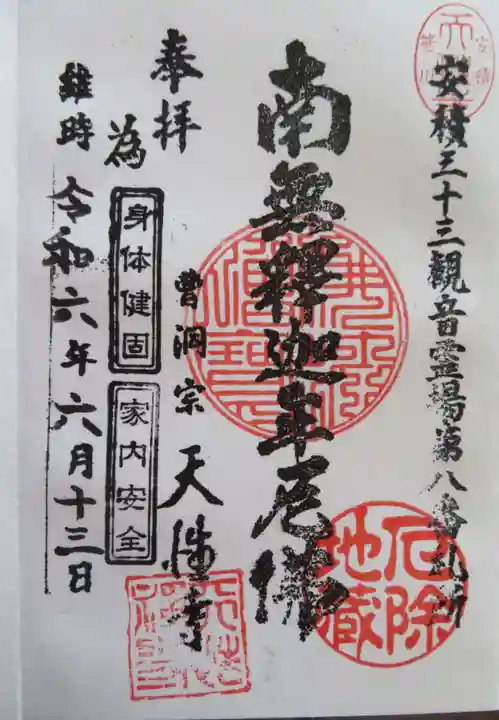 安積三十三観音霊場第八番札所
南無釋迦牟尼佛
奉拝
曹洞宗 天性寺
為
身体健固
家内安全
維時 令和六年六月十三日
厄除
地蔵